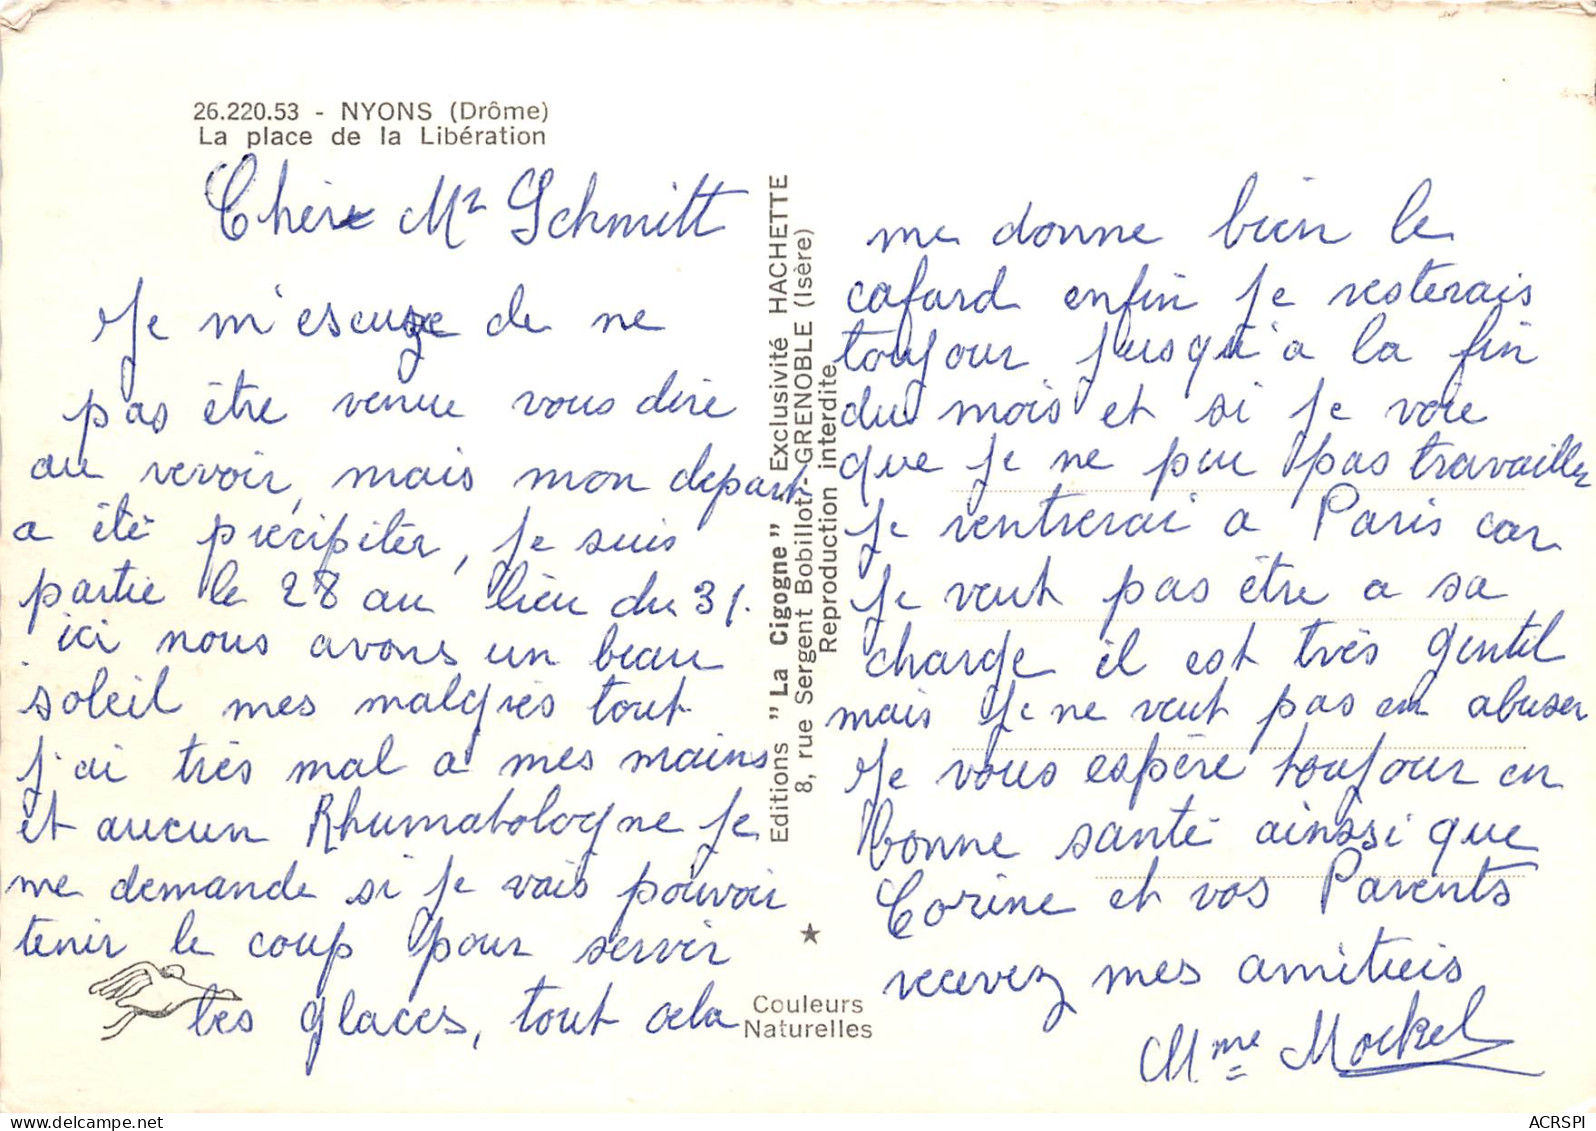 26.220.53 - NYONS (Drôme)
La place de la Libération
Chère Mr Schmitt
Je m'escuze de ne
pas être venue vous dire
au revoir, mais mon depart
a été précipiter, je suis
partie le 28 au lieu du 31.
ici nous avons un beau
soleil mes malgrès tout
j'ai très mal a mes mains
et aucun Rhumatologne je
me demande si je vais pouvoir
tenir le coup pour servir
les glaces, tout cela
Editions "La Cigogne" - Exclusivité HACHETTE
8, rue Sergent Bobillot - GRENOBLE (Isère)
Reproduction interdite
Couleurs
Naturelles
me donne bien le
cafard enfin je resterais
toujour jusqu'a la fin
du mois et si je voie
que je ne peu pas travailler
je rentrerai a Paris car
je veut pas être a sa
charge il est très gentil
mais je ne veut pas en abuser
Je vous espère toujour en
bonne santé ainssi que
Corine et vos Parents
recevez mes amitieis
Mme Mockel
ACRSPI